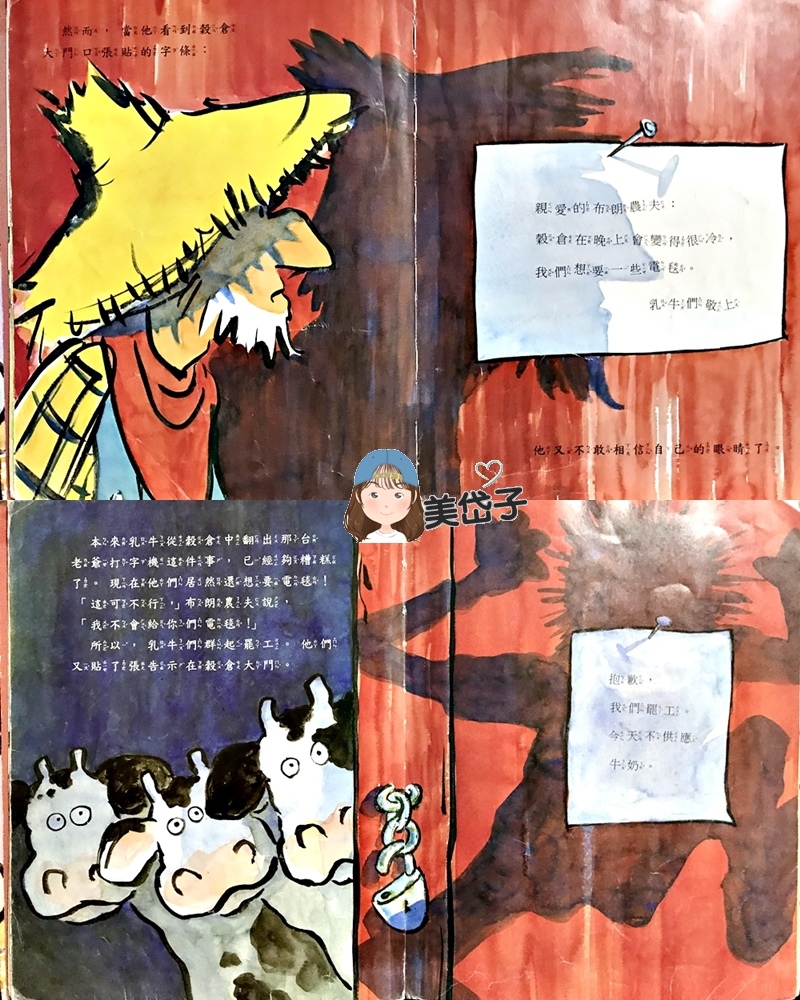 然而，當他看到穀倉
大門口張貼的字條：
親愛的布朗農夫：
穀倉在晚上會變得很冷，
我們想要一些電毯。
乳牛們敬上
他又不敢相信自己的眼睛了。
美岱子
本來乳牛從穀倉中翻出那台
老爺打字機這件事，已經夠糟糕
了。現在他們居然還想要電毯！
「這可不行，」布朗農夫說，
「我不會給你們電毯！」
所以，乳牛們群起罷工。他們
又貼了張告示在穀倉大門。
抱歉，
我們罷工。
今天不供應
牛奶。